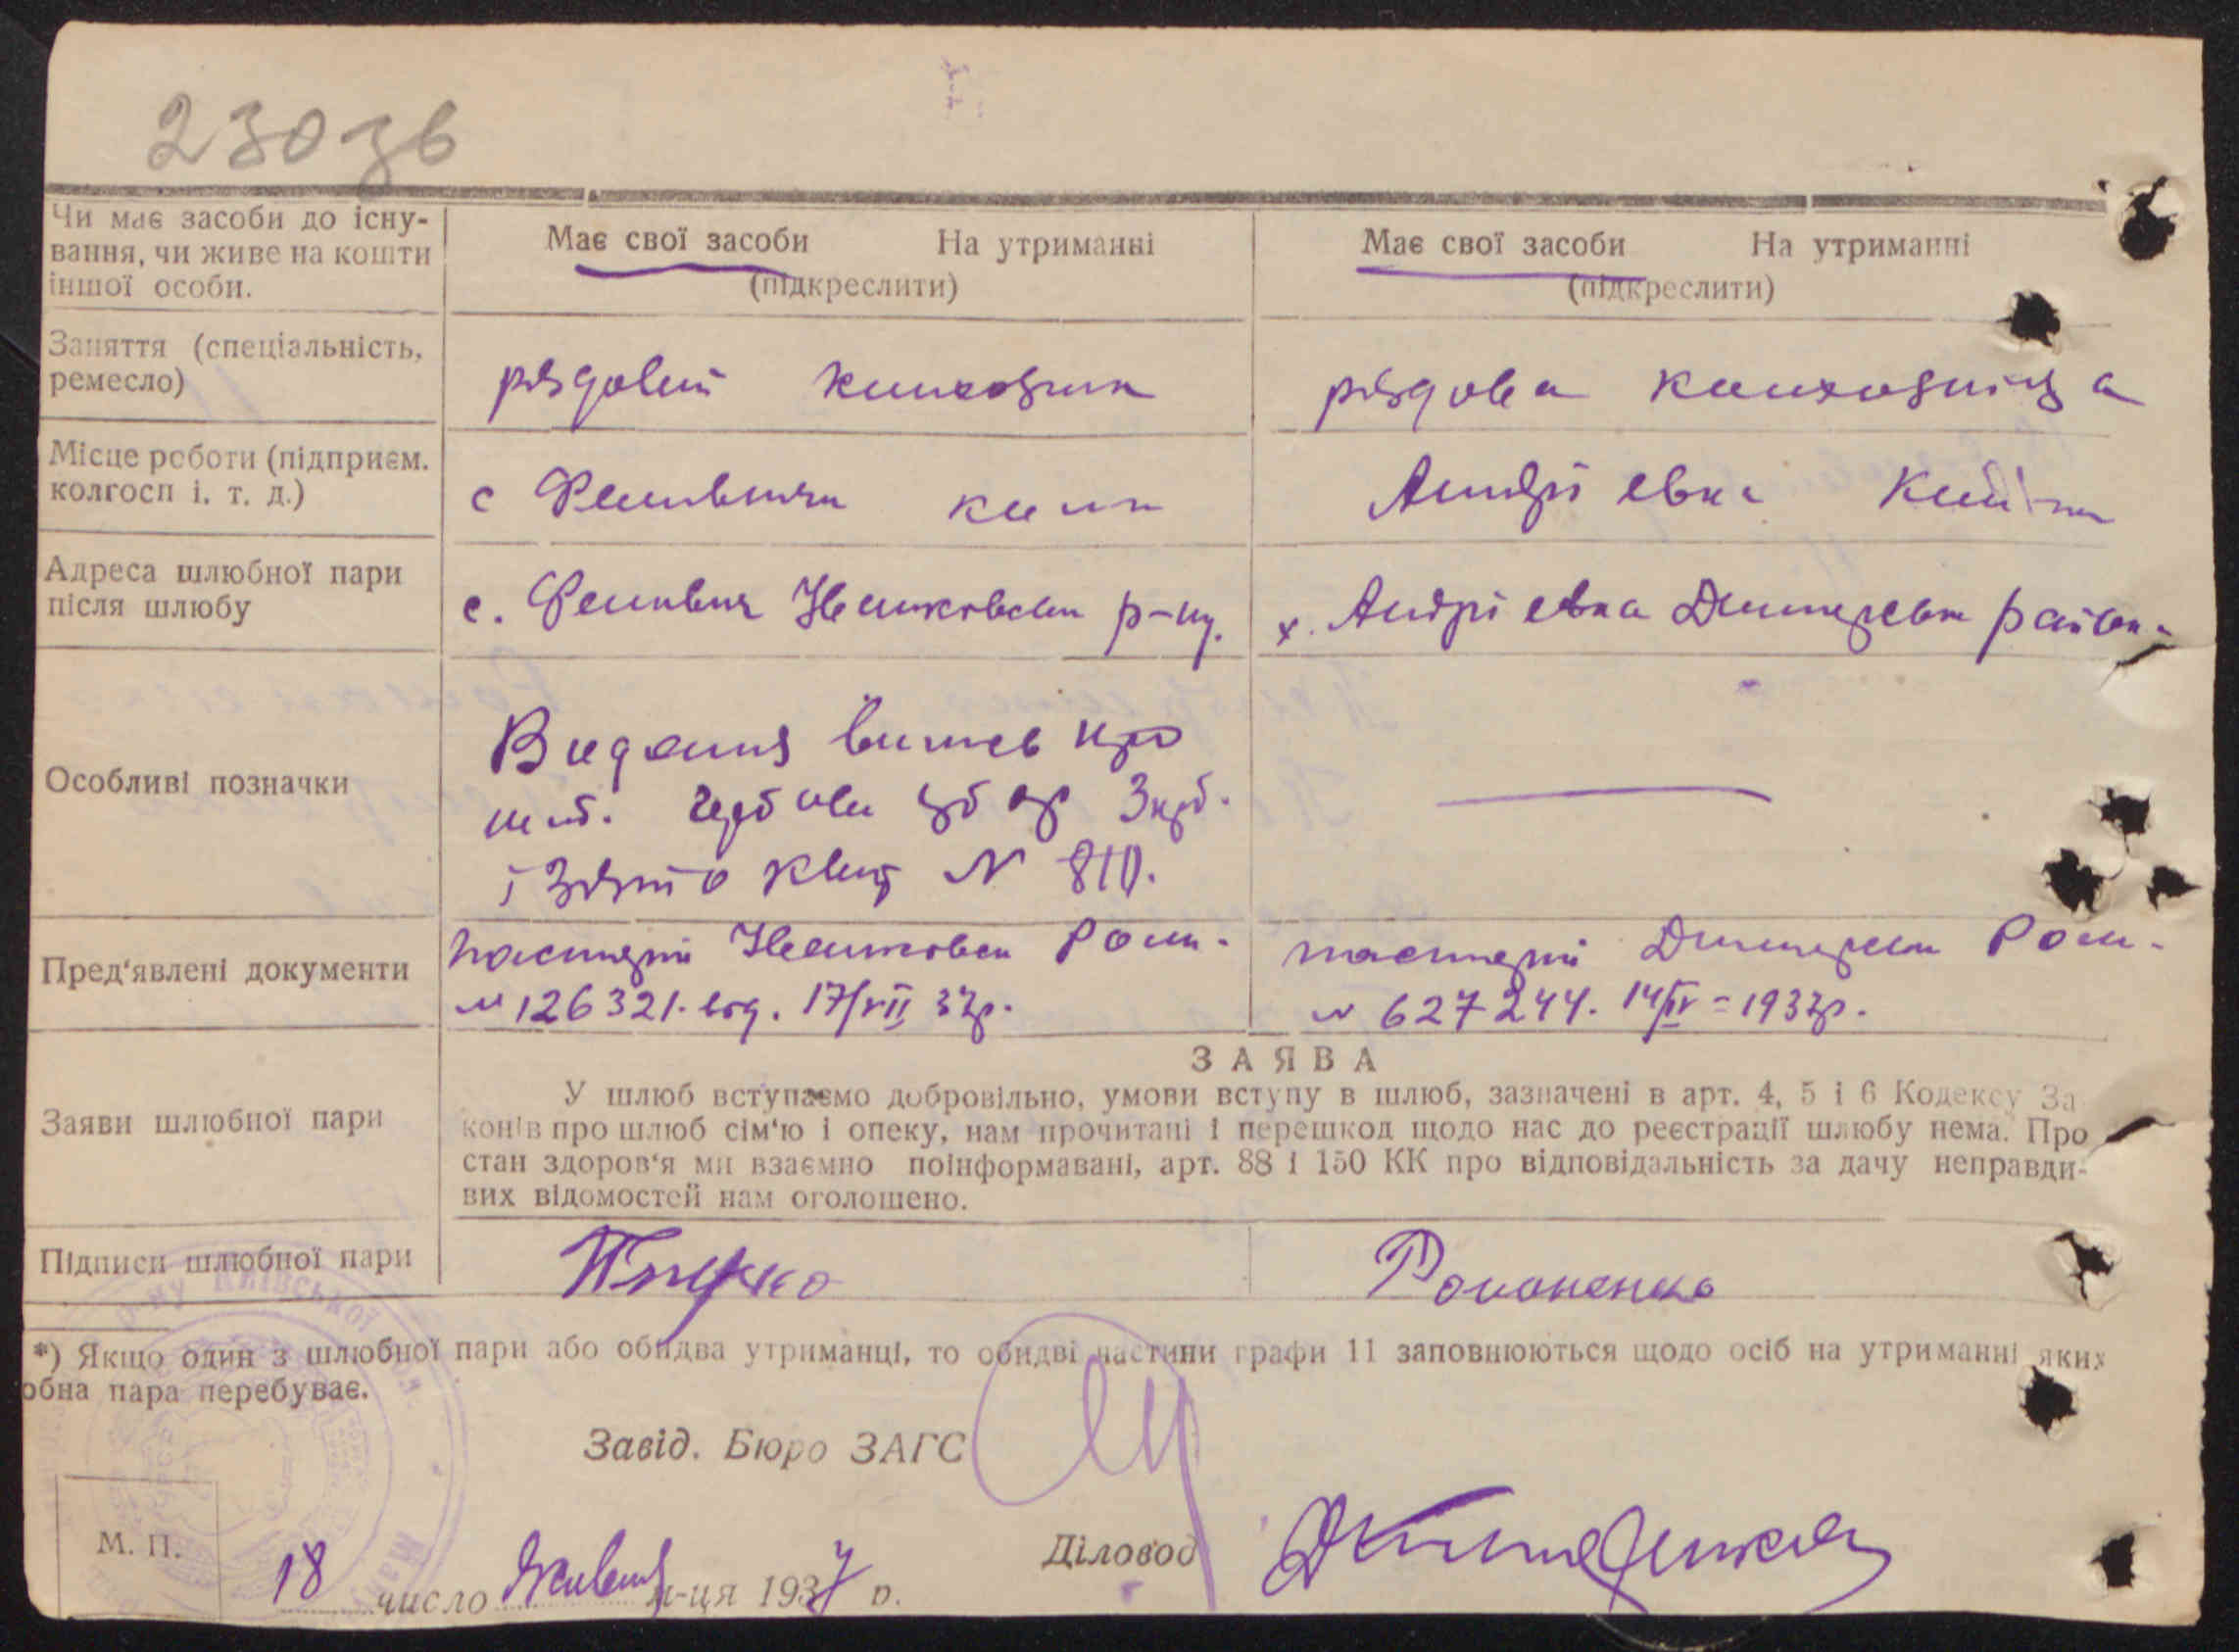 230 зв
Чи має засоби до існу-
вання, чи живе на кошти
іншої особи.
Має свої засоби На утриманні
(підкреслити)
Має свої засоби На утриманні
(підкреслити)
Заняття (спеціальність,
ремесло)
рядовий колгоспник
рядова колгоспниця
Місце роботи (підприєм.
колгосп і. т. д.)
с
Андріівка
Адреса шлюбної пари
після шлюбу
с. р-ну.
х. Андріівка Димерськ район
Особливі позначки
Видання витяг про
шлюб. гербови збор 3 крб.
і взято квит N 810.
Пред'явлені документи
паспорт
№ 126321. від. 17/VII 37р.
паспорт Димерськ
№ 627244. 14/IV - 1937р.
Заяви шлюбної пари
ЗАЯВА
У шлюб вступаємо добровільно, умови вступу в шлюб, зазначені в арт. 4, 5 і 6 Кодексу За
конів про шлюб сім'ю і опеку, нам прочитані і перешкод щодо нас до реєстрації шлюбу нема. Про
стан здоров'я ми взаємно поінформавані, арт. 88 і 150 КК про відповідальність за дачу неправди-
вих відомостей нам оголошено.
Підписи шлюбної пари
Романенко
*) Якщо один з шлюбної пари або обидва утриманці, то обидві частини графи 11 заповнюються щодо осіб на утриманні яких
обна пара перебуває.
Завід. Бюро ЗАГС
М. П.
Діловод
18 число Жовтня м-ця 1937 р.